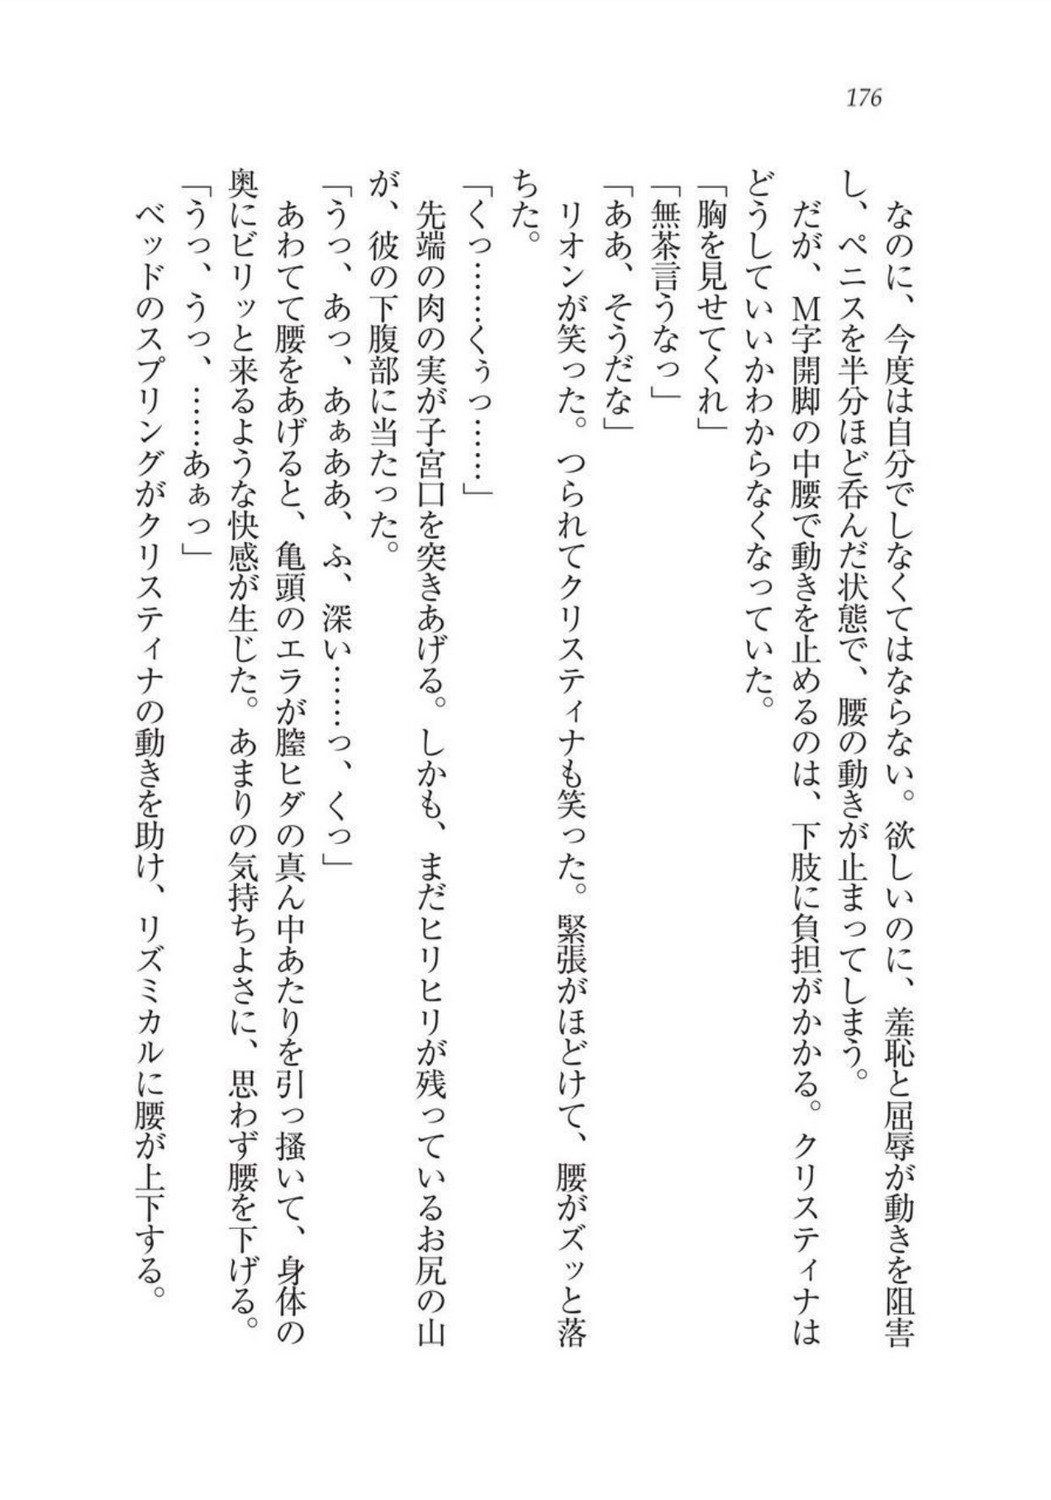 176
　なのに、今度は自分でしなくてはならない。欲しいのに、羞恥と屈辱が動きを阻害
し、ペニスを半分ほど呑んだ状態で、腰の動きが止まってしまう。
　だが、Ｍ字開脚の中腰で動きを止めるのは、下肢に負担がかかる。クリスティナは
どうしていいかわからなくなっていた。
「胸を見せてくれ」
「無茶言うなっ」
「ああ、そうだな」
　リオンが笑った。つられてクリスティナも笑った。緊張がほどけて、腰がズッと落
ちた。
「くっ……くぅっ……」
　先端の肉の実が子宮口を突きあげる。しかも、まだヒリヒリが残っているお尻の山
が、彼の下腹部に当たった。
「うっ、あっ、あぁああ、ふ、深い……っ、くっ」
　あわてて腰をあげると、亀頭のエラが膣ヒダの真ん中あたりを引っ掻いて、身体の
奥にビリッと来るような快感が生じた。あまりの気持ちよさに、思わず腰を下げる。
「うっ、うっ、……あぁっ」
　ベッドのスプリングがクリスティナの動きを助け、リズミカルに腰が上下する。